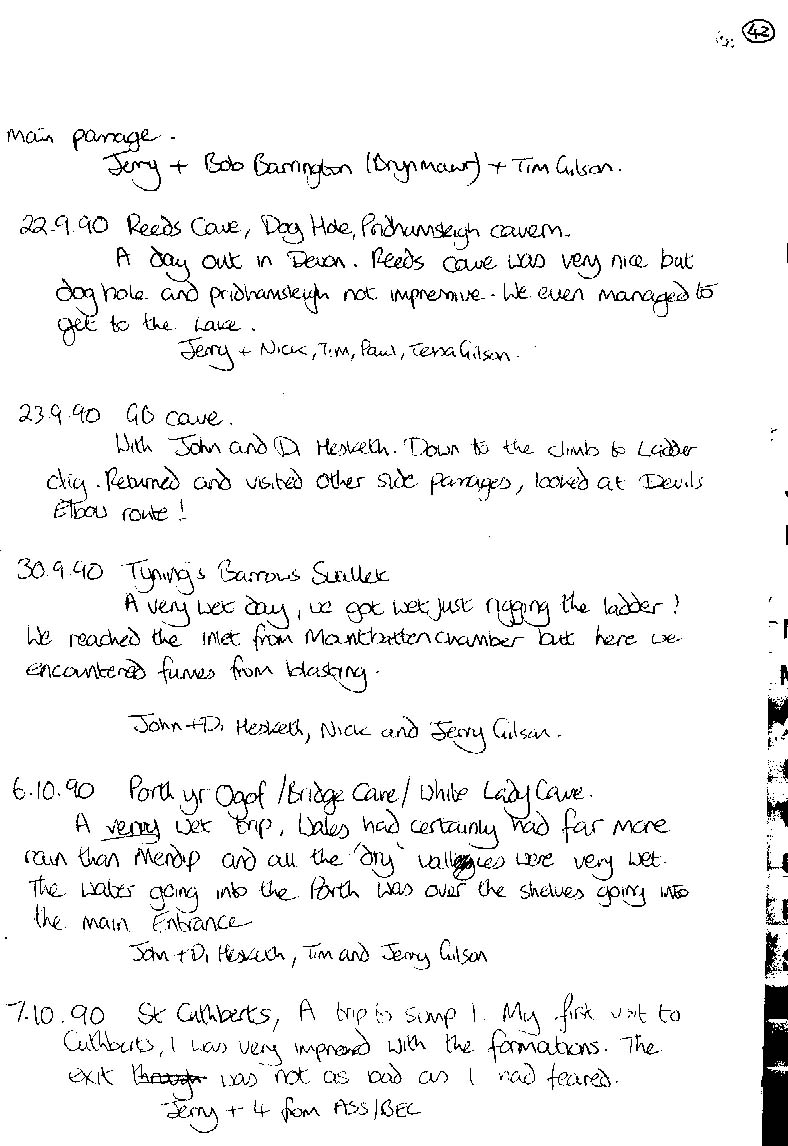 42
main passage.
Jerry + Bob Barrington (Brynmawr) + Tim Gilson.
22.9.90 Reeds Cave, Dog Hole, Pridhamsleigh cavern.
A day out in Devon. Reeds cave was very nice but
dog hole and pridhamsleigh not impressive. We even managed to
get to the Lake.
Jerry + Nick, Tim, Paul, Tessa Gilson.
23.9.90 GB cave.
With John and Di Hesketh. Down to the climb to Ladder
dig. Returned and visited other side passages, looked at Devils
Elbow route!
30.9.90 Tyning's Barrows Swallet
A very wet day, we got wet just rigging the ladder!
We reached the inlet from Manthatten chamber but here we
encountered fumes from blasting.
John + Di Hesketh, Nick and Jerry Gilson.
6.10.90 Porth yr Ogof / Bridge Cave / White Lady Cave.
A very wet trip, Wales had certainly had far more
rain than Mendip and all the 'dry' valleys were very wet.
The water going into the Porth was over the shelves going into
the main Entrance
John + Di Hesketh, Tim and Jerry Gilson
7.10.90 St Cuthberts, A trip to sump 1. My first visit to
Cuthberts, I was very impressed with the formations. The
exit through was not as bad as I had feared.
Jerry + 4 from ASS/BEC